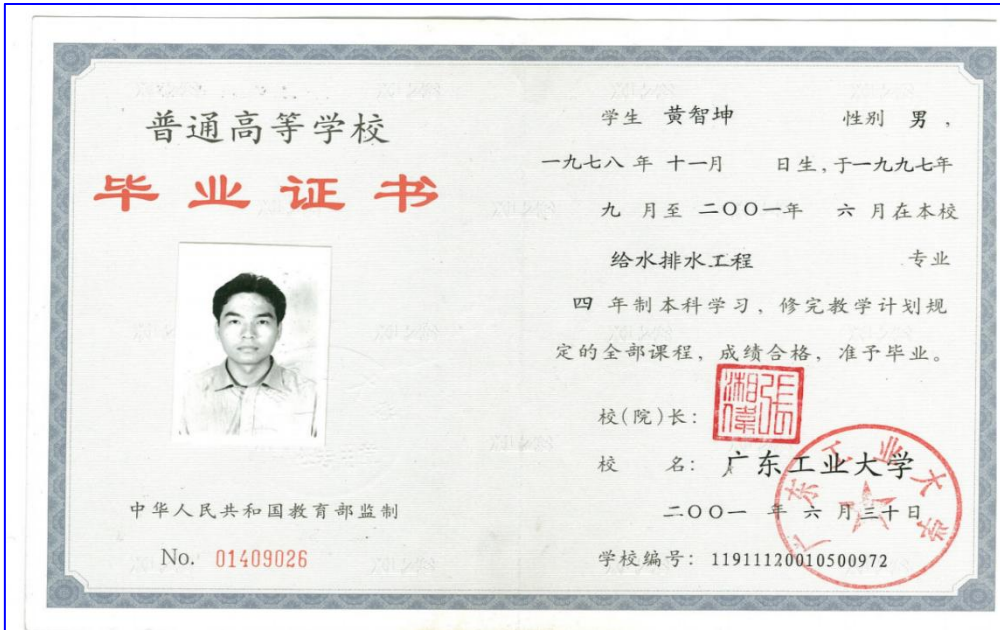 普通高等学校
毕业证书
中华人民共和国教育部监制
No. 01409026
学生 黄智坤 性别 男，
一九七八 年 十一月 日生，于一九九七年
九 月至 二〇〇一年 六 月在本校
给水排水工程 专业
四 年制本科学习，修完教学计划规
定的全部课程，成绩合格，准予毕业。
校(院)长：
张湘伟
校 名：广东工业大学
二〇〇一 年 六 月三十日
广东工业大学
学校编号：11911120010500972